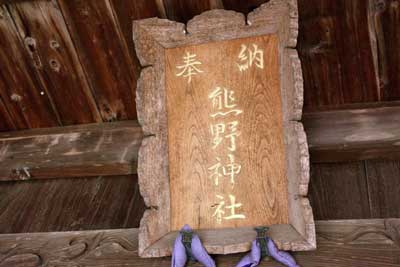 奉納
熊野神社